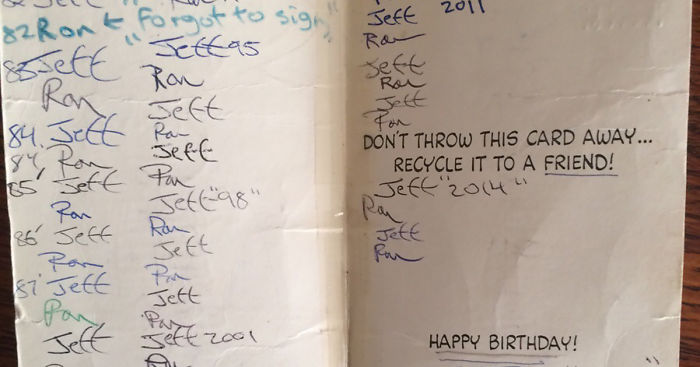 82 Jeff "
82 Ron ← "forgot to sign"
83 Jeff
Ron
84. Jeff
84' Ron
85' Jeff
Ron
86' Jeff
Ron
87' Jeff
Ron
Jeff
Jeff 95
Ron
Jeff
Ron
Jeff
Ron
Jeff "98"
Ron
Jeff
Ron
Jeff
Ron
Jeff 2001
Jeff 2011
Ron
Jeff
Ron
Jeff
Ron
DON'T THROW THIS CARD AWAY...
RECYCLE IT TO A FRIEND!
Jeff "2014"
Ron
Jeff
Ron
HAPPY BIRTHDAY!